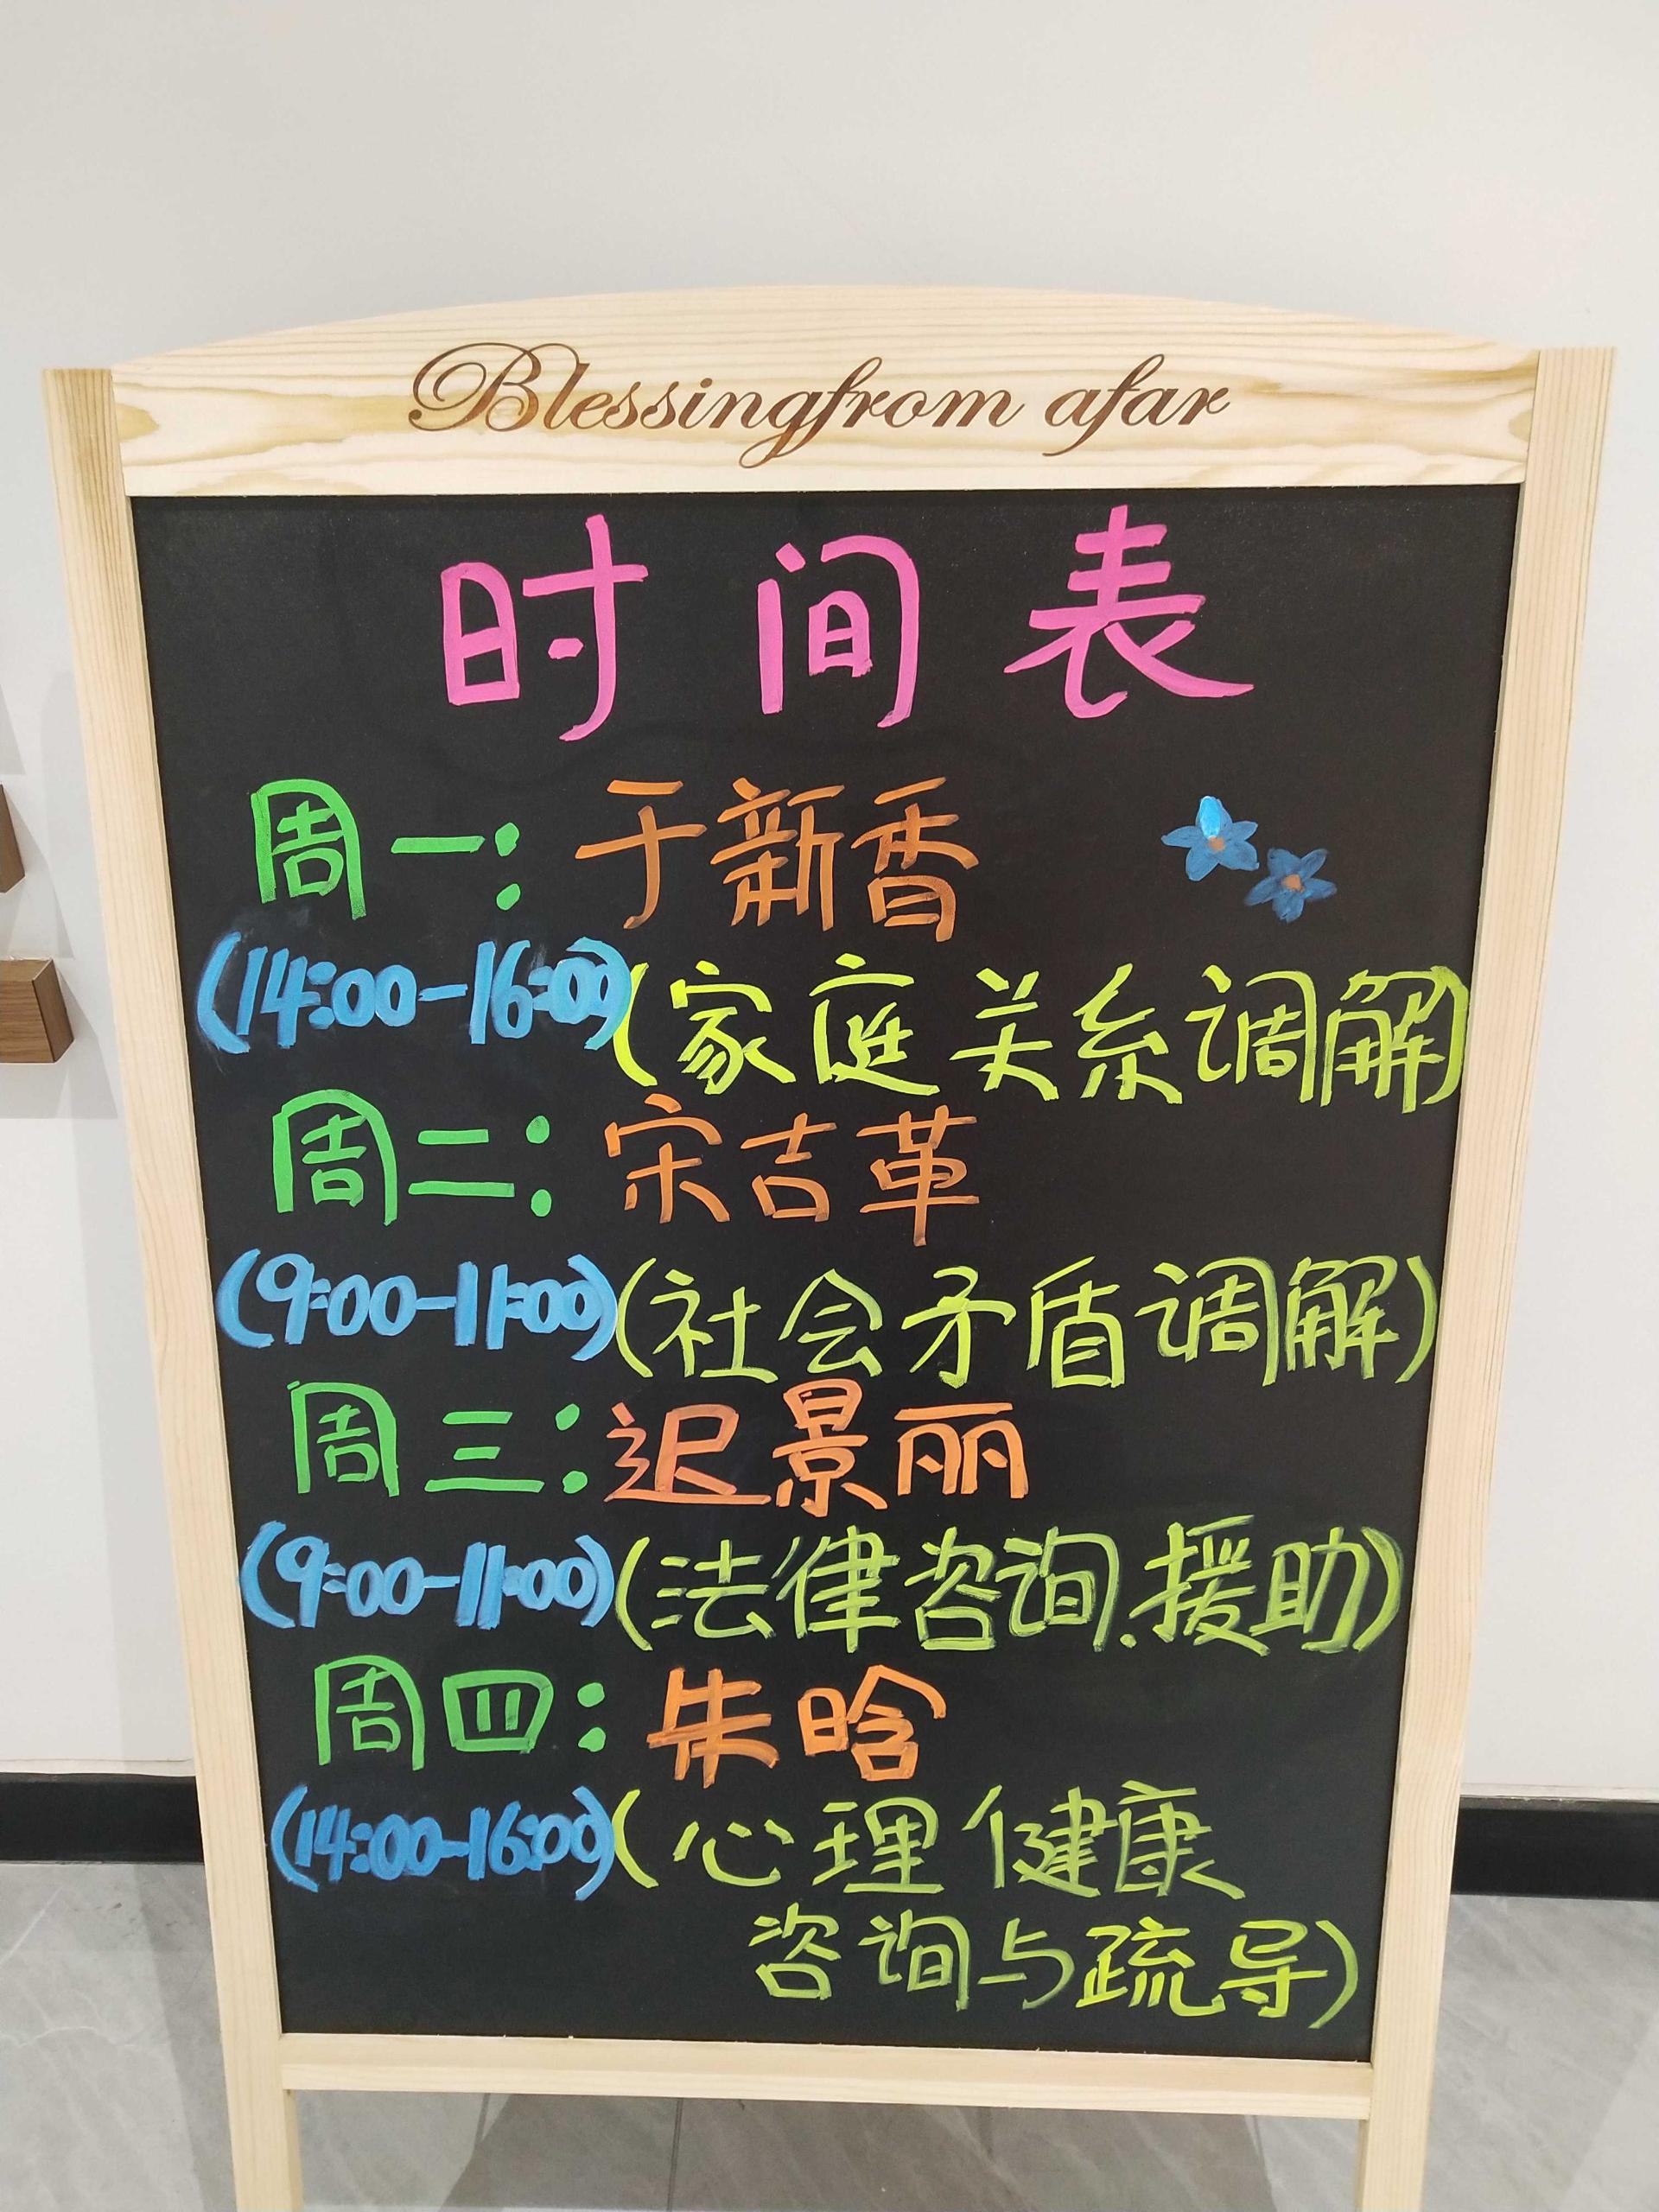 Blessingfrom afar
时间表
周一:于新香
(14:00-16:00)(家庭关系调解)
周二:宋吉革
(9:00-11:00)(社会矛盾调解)
周三:迟景丽
(9:00-11:00)(法律咨询.援助)
周四:朱晗
(14:00-16:00)(心理健康
咨询与疏导)